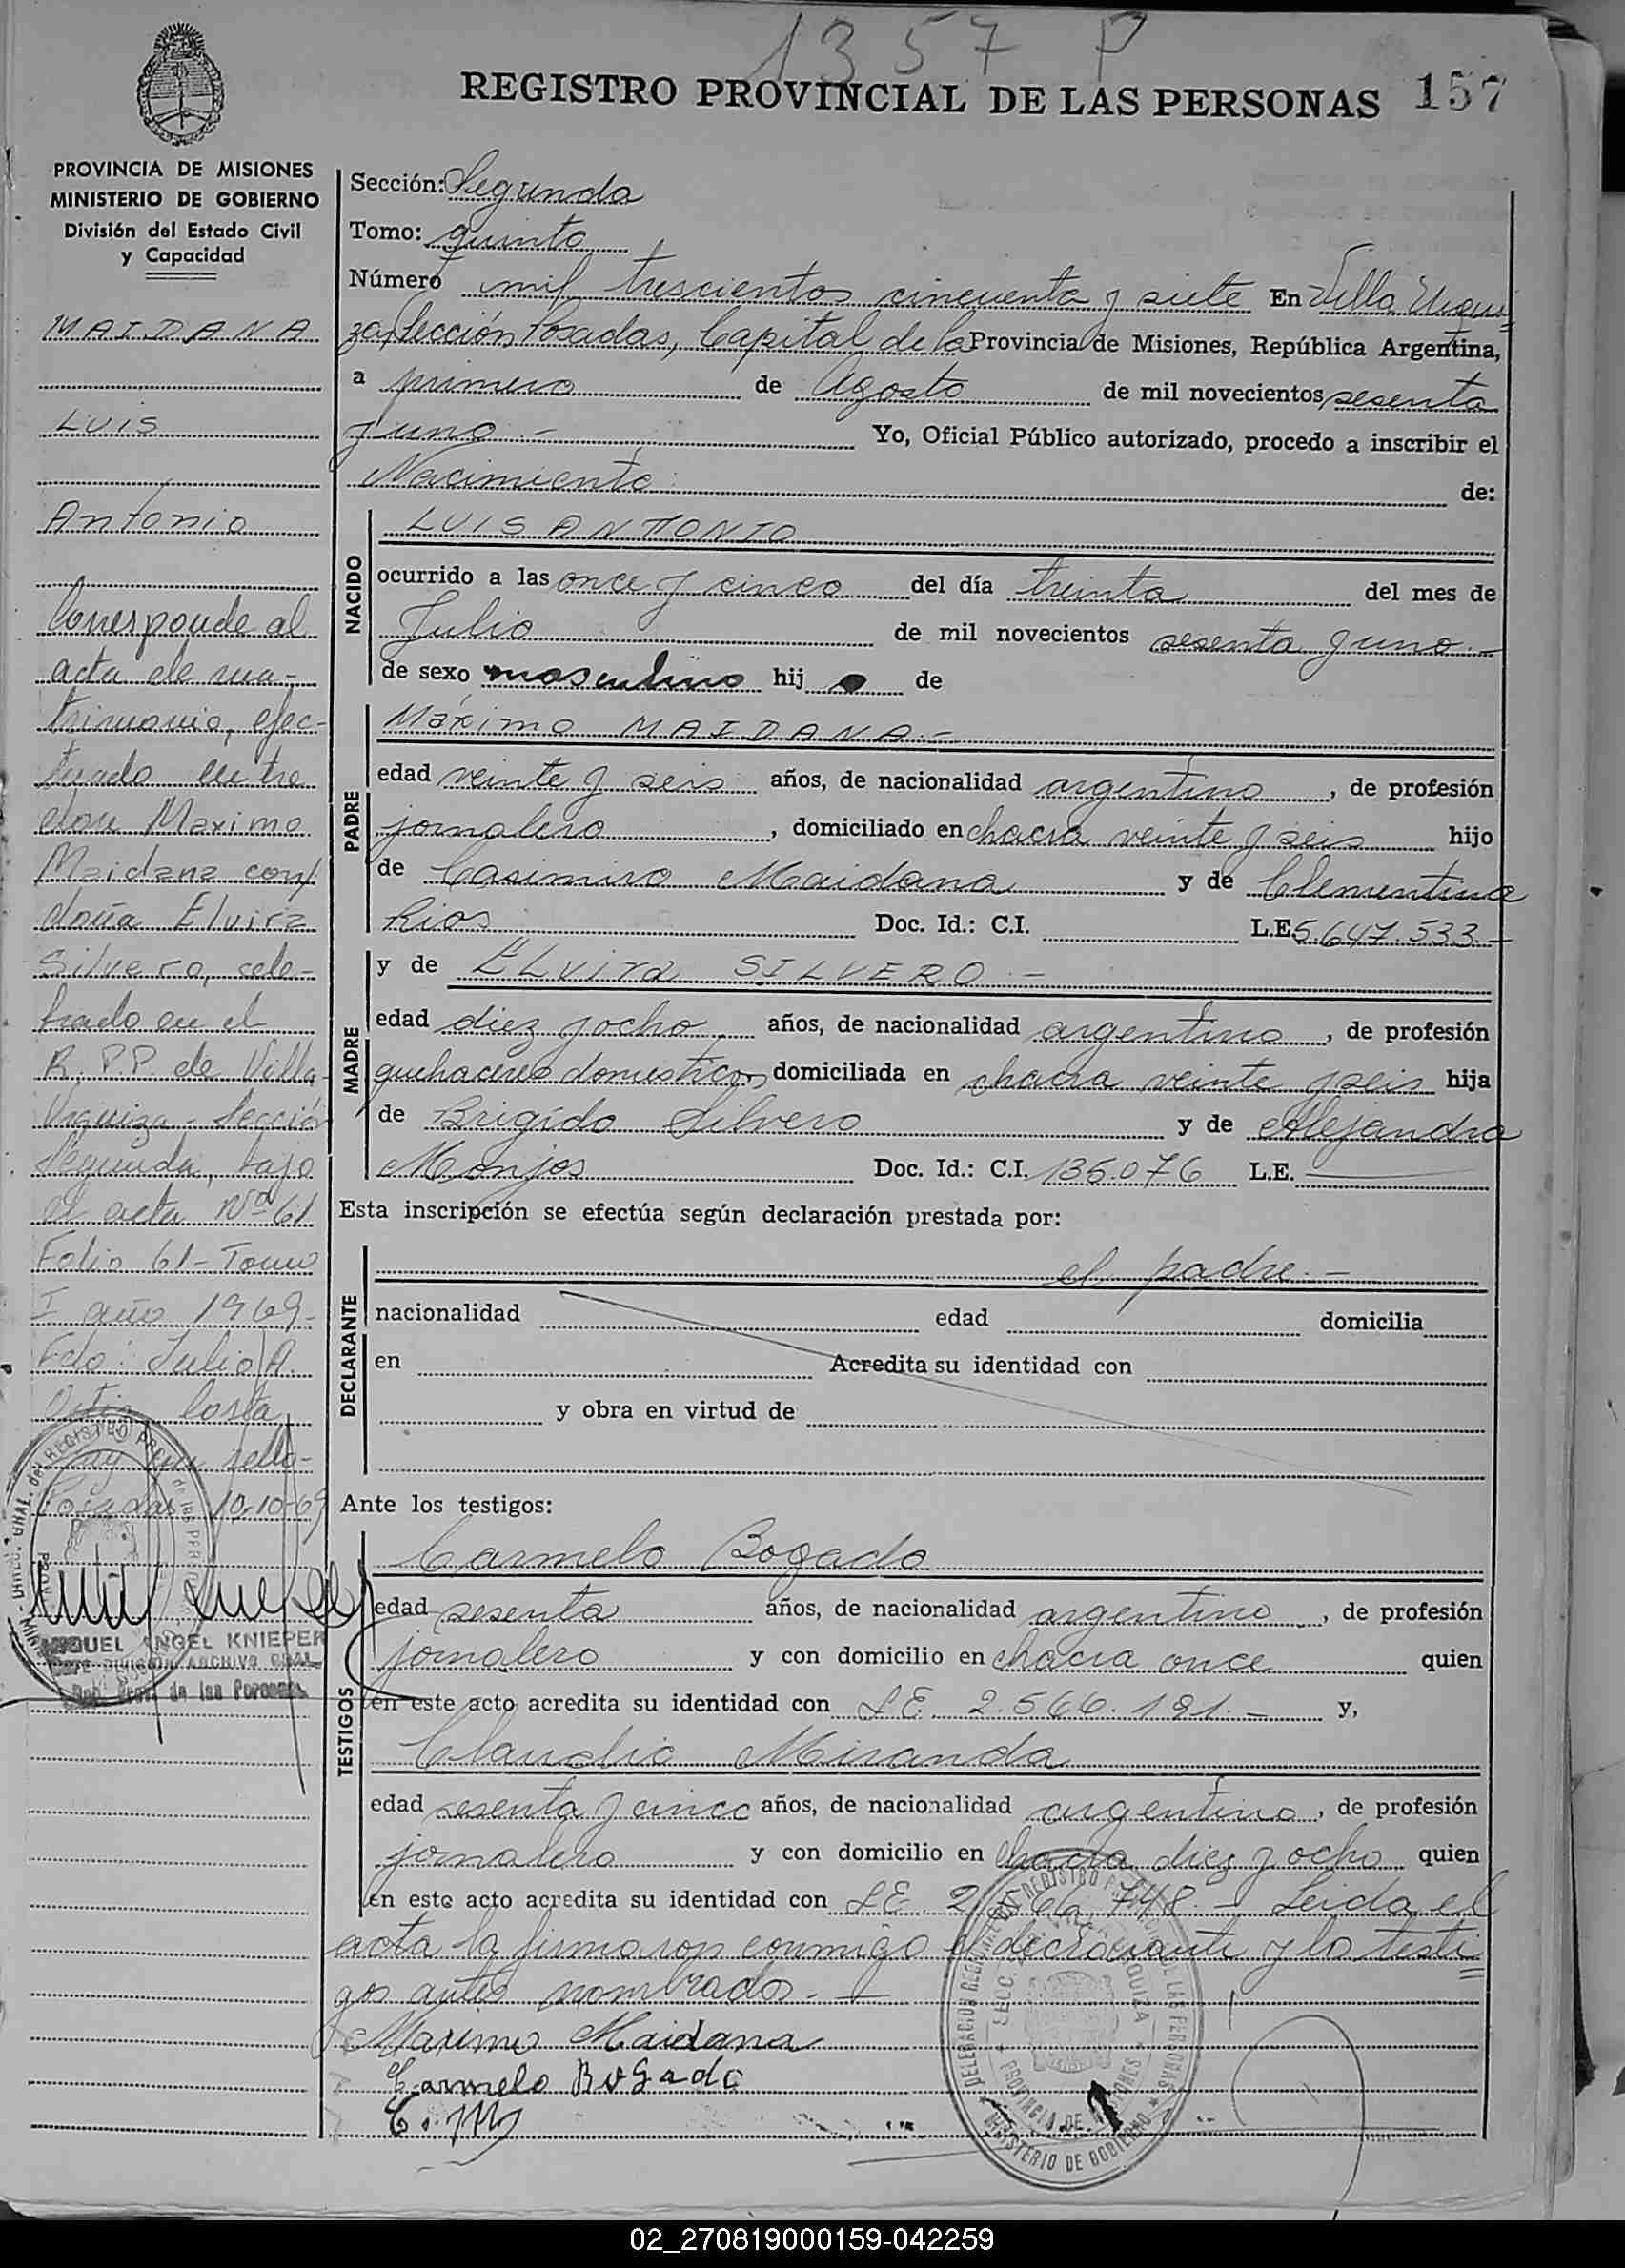 1357 P
REGISTRO PROVINCIAL DE LAS PERSONAS 157
PROVINCIA DE MISIONES
MINISTERIO DE GOBIERNO
División del Estado Civil
y Capacidad
MAIDANA
LUIS
Antonio
Corresponde al
acta de ma-
trimonio, efec-
tuado entre
don Maximo
Maidana con
doña Elvira
Silvero, cele-
brado en el
R.P.P. de Villa
Urquiza - Sección
Segunda, bajo
el acta Nº 61
Folio 61 - Tomo
I año 1969-
Fdo: Julio A.
Costa
hay un sello-
Posadas 10-10-69
MIGUEL ANGEL KNIEPER
JEFE DIVISION ARCHIVO GRAL.
Reg. Prov. de las Personas
Sección: Segunda
Tomo: quinto
Número mil trescientos cincuenta y siete En Villa Urqui-
za, Sección Posadas, Capital de la Provincia de Misiones, República Argentina,
a primero de Agosto de mil novecientos sesenta
y uno.- Yo, Oficial Público autorizado, procedo a inscribir el
Nacimiento de:
NACIDO
LUIS ANTONIO
ocurrido a las once y cinco del día treinta del mes de
Julio de mil novecientos sesenta y uno.-
de sexo masculino hijo de
PADRE
Máximo MAIDANA.-
edad veinte y seis años, de nacionalidad argentino, de profesión
jornalero, domiciliado en chacra veinte y seis hijo
de Casimiro Maidana y de Clementina
Rios Doc. Id.: C.I. L.E 5.647.533.-
MADRE
y de Elvira SILVERO.-
edad diez y ocho años, de nacionalidad argentina, de profesión
quehaceres domesticos domiciliada en chacra veinte y seis hija
de Brigido Silvero y de Alejandra
Monjes Doc. Id.: C.I. 135.076 L.E.
Esta inscripción se efectúa según declaración prestada por:
DECLARANTE
el padre.-
nacionalidad edad domicilia
en Acredita su identidad con
y obra en virtud de
Ante los testigos:
TESTIGOS
Carmelo Bogado
edad sesenta años, de nacionalidad argentino, de profesión
jornalero y con domicilio en chacra once quien
en este acto acredita su identidad con L.E. 2.566.191.- y,
Claudio Miranda
edad sesenta y cinco años, de nacionalidad argentino, de profesión
jornalero y con domicilio en chacra diez y ocho quien
en este acto acredita su identidad con L.E. 748.- Leida el
acta la firmaron conmigo el declarante y lo testi
gos antes nombrados.-
Maximo Maidana
Carmelo Bogado
C. M
MINISTERIO DE GOBIERNO
02_270819000159-042259